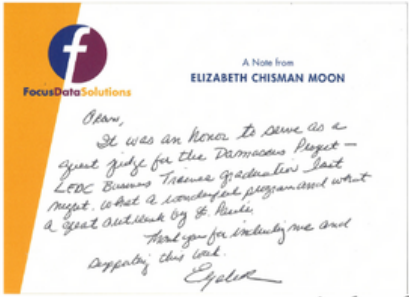 f
FocusDataSolutions
A Note from
ELIZABETH CHISMAN MOON
It was an honor to serve as a
guest judge for the Damascus Project –
LEDC Business Trainee graduation last
night. What a wonderful program and what
a great outreach by St.
Thank you for including me and
supporting this work.